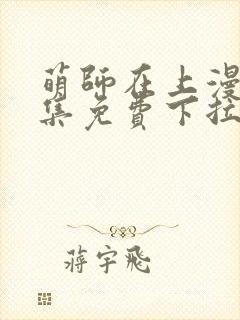 萌师在上漫
集免费下拉
蒋宇飛